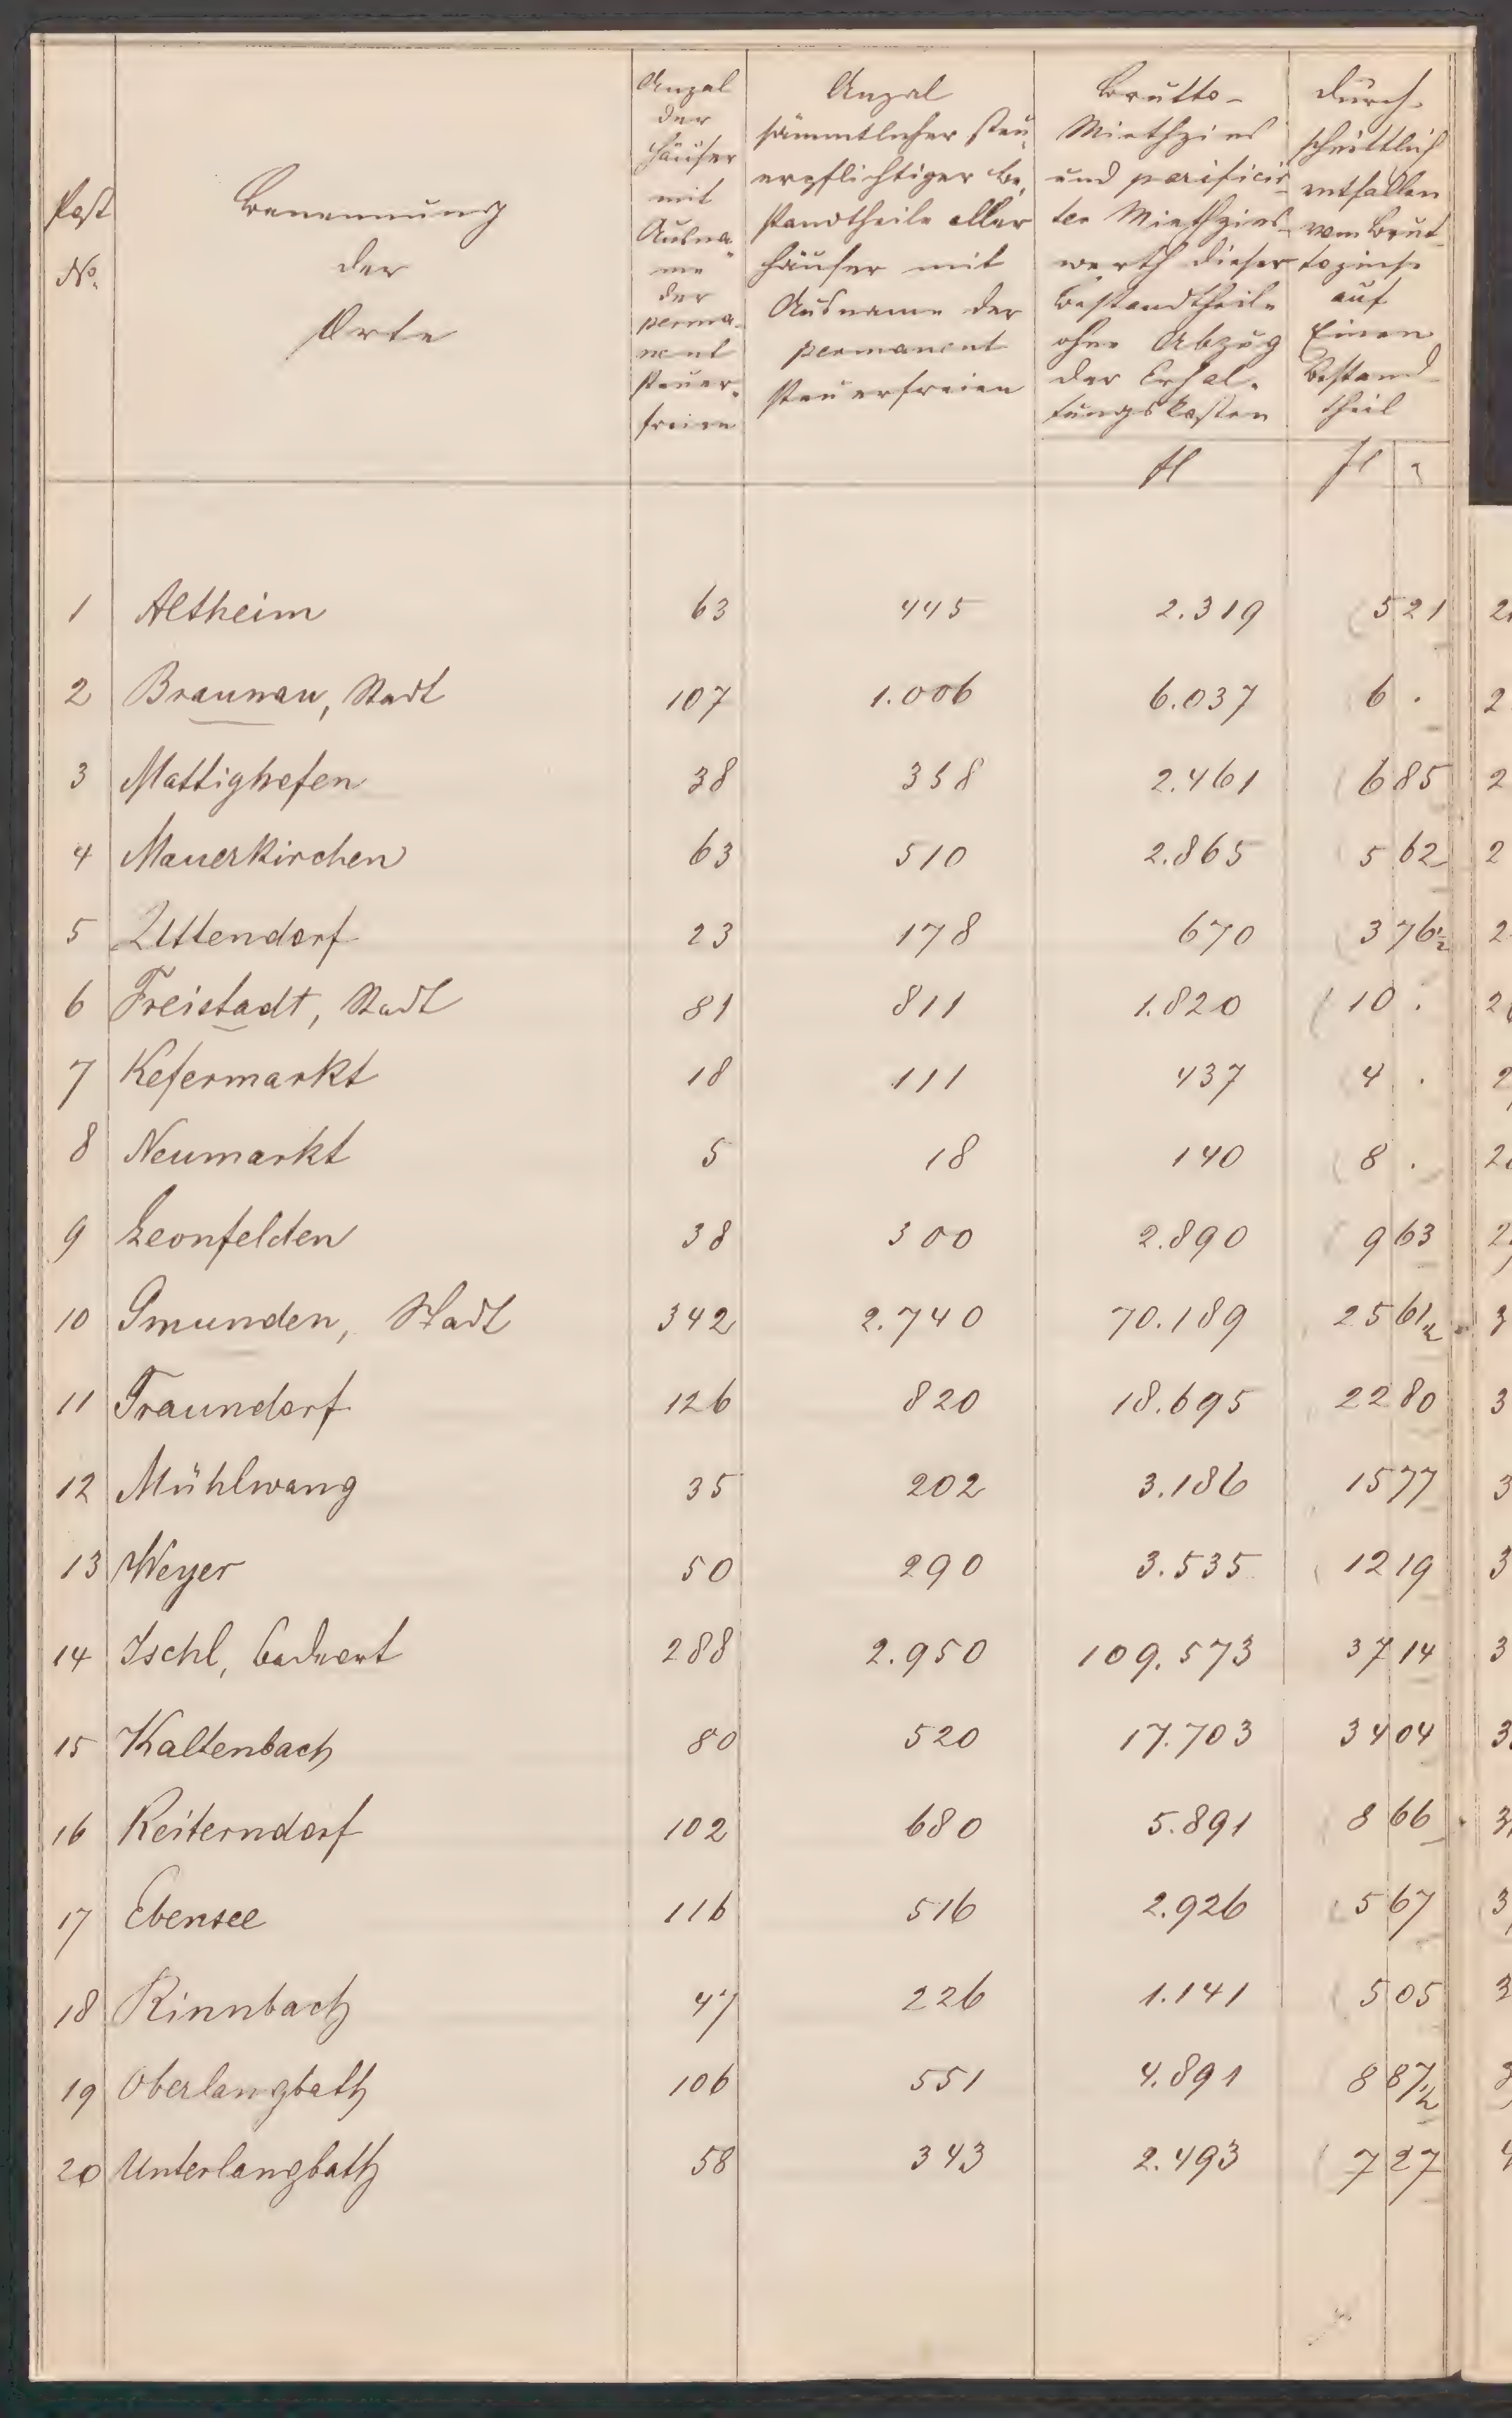 Post
No.
Benennung
der
Orte
Anzal
der
Häuser
mit
Ausna-
me
der
perma-
nent
steuer-
freien
Anzal
sämmtlicher steu-
erpflichtiger Be-
standtheile aller
Häuser mit
Ausname der
permanent
steuerfreien
Brutto-
Miethzins
und parificir-
ter Miethzins-
werth dieser
Bestandtheile
ohne Abzug
der Erhal-
tungskosten
fl
Durch-
schnittlich
entfallen
vom Brut-
tozinse
auf
Einen
Bestand-
theil
fl
1 Altheim 63 445 2.319 5 21
2 Braunau, Stadt 107 1.006 6.037 6 .
3 Mattighofen 38 358 2.461 6 85
4 Mauerkirchen 63 510 2.865 5 62
5 Uttendorf 23 178 670 3 76½
6 Freistadt, Stadt 81 811 1.820 10 .
7 Kefermarkt 18 111 437 4 .
8 Neumarkt 5 18 140 8 .
9 Leonfelden 38 300 2.890 9 63
10 Gmunden, Stadt 342 2.740 70.189 25 61½
11 Traundorf 126 820 18.695 22 80
12 Mühlwang 35 202 3.186 15 77
13 Weyer 50 290 3.535 12 19
14 Ischl, Badeort 288 2.950 109.573 37 14
15 Kaltenbach 80 520 17.703 34 04
16 Reiterndorf 102 680 5.891 8 66
17 Ebensee 116 516 2.926 5 67
18 Rinnbach 47 226 1.141 5 05
19 Oberlangbath 106 551 4.891 8 87½
20 Unterlangbath 58 343 2.493 7 27